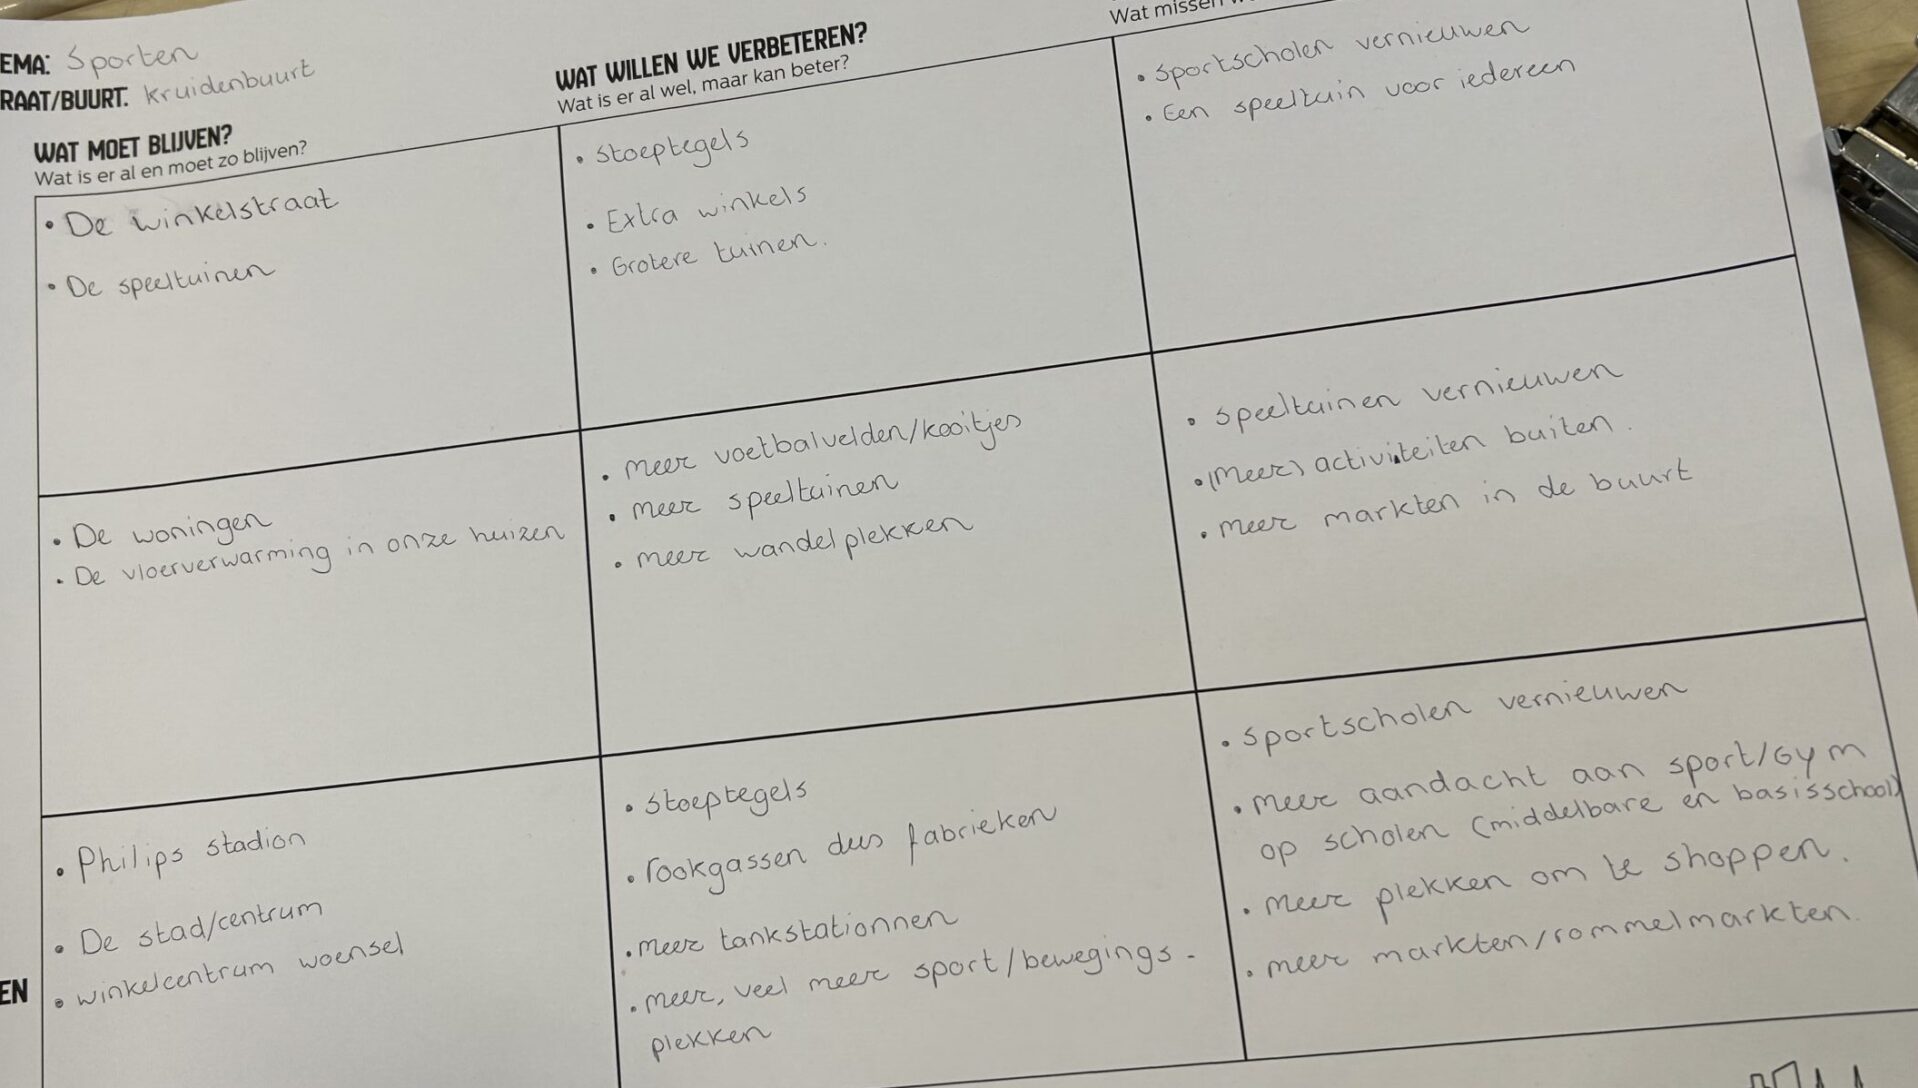 EMA: Sporten
RAAT/BUURT: Kruidenbuurt
WAT MOET BLIJVEN?
Wat is er al en moet zo blijven?
WAT WILLEN WE VERBETEREN?
Wat is er al wel, maar kan beter?
Wat missen
• De winkelstraat
• De speeltuinen
• Stoeptegels
• Extra winkels
• Grotere tuinen.
• Sportscholen vernieuwen
• Een speeltuin voor iedereen
• De woningen
• De vloerverwarming in onze huizen
• meer voetbalvelden/kooitjes
• meer speeltuinen
• meer wandelplekken
• speeltuinen vernieuwen
• (meer) activiteiten buiten.
• meer markten in de buurt
EN
• Philips stadion
• De stad/centrum
• winkelcentrum woensel
• stoeptegels
• rookgassen dus fabrieken
• meer tankstationnen
• meer, veel meer sport/bewegings-
plekken
• sportscholen vernieuwen
• meer aandacht aan sport/gym
op scholen (middelbare en basisschool)
• meer plekken om te shoppen.
• meer markten/rommelmarkten.